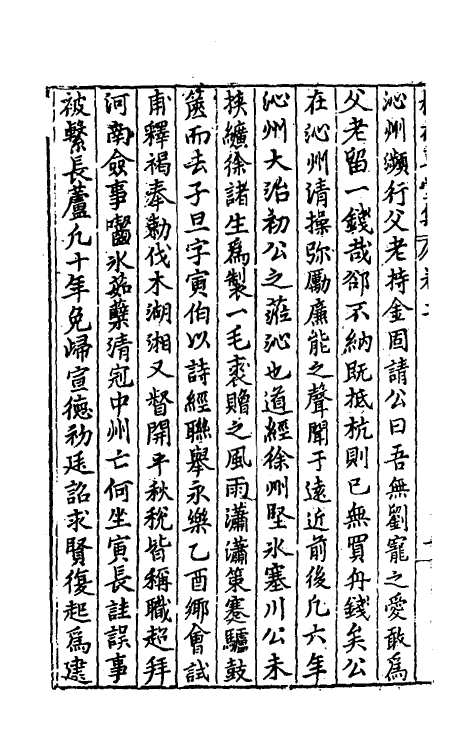 沁州瀕行父老持金固請公曰吾無劉寵之愛敢為
父老留一錢哉郤不納既抵杭則已無買舟錢矣公
在沁州清操弥勵廉能之聲聞于遠近前後凡六年
沁州大治初公之蒞沁也道經徐州堅氷塞川公未
挾纊徐諸生為製一毛裘贈之風雨瀟瀟策蹇驢鼓
篋而去子旦字寅伯以詩經聯舉永樂乙酉鄉會試
甫釋褐奉勑伐木湖湘又督開平秋稅皆稱職超拜
河南僉事囓氷茹蘗清冠中州亡何坐寅長詿誤事
被繫長蘆凡十年免歸宣德初廷詔求賢復起為建